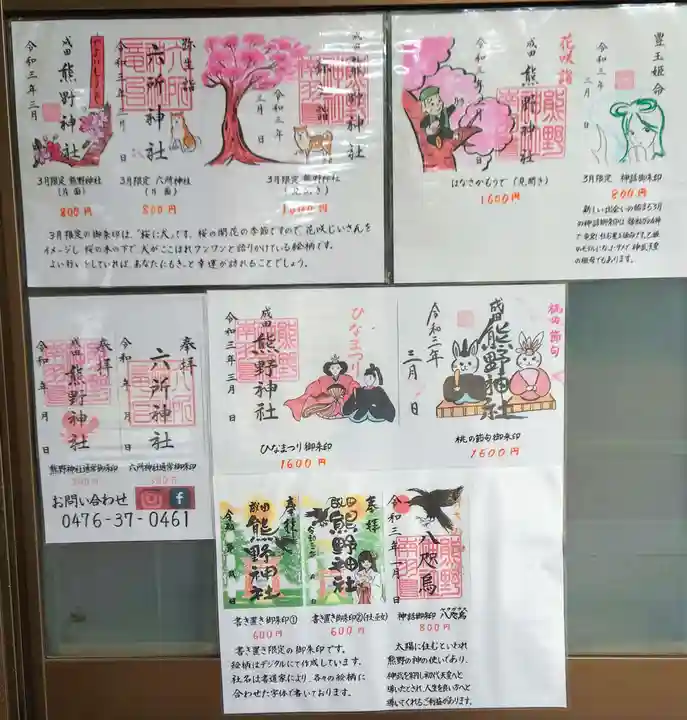 やよいもうで
成田 熊野神社
令和三年三月
3月限定 熊野神社
(片面)
800円
弥生詣
六所神社
3月限定 六所神社
(片面)
800円
令和三年
三月
日
3月限定 熊野神社
3月限定の御朱印は、「桜に犬」です。桜の開花の季節ですので、花咲じいさんを
イメージし 桜の木の下で 犬が ここほれワンワンと語りかけている絵柄です。
よい行いをしていれば、あなたにもきっと幸運が訪れることでしょう。
花咲詣
成田 熊野神社
令和三年
三月
日
はなさかもうで「見開き」
1600円
豊玉姫命
令和三年
三月
日
3月限定 神話御朱印
800円
奉拝
成田 熊野神社
令和 年 月 日
熊野神社通常御朱印
300円
奉拝
六所神社
令和 年 月 日
六所神社通常御朱印
300円
お問い合わせ
0476-37-0461
ひなまつり
成田 熊野神社
令和三年三月 日
ひなまつり御朱印
1600円
桃の節句
成田 熊野神社
令和三年
三月
日
桃の節句御朱印
1600円
奉拝
成田 熊野神社
書き置き御朱印①
600円
奉拝
成田 熊野神社
書き置き御朱印②(柱巫女)
600円
八咫烏
令和三年一月 日
神話御朱印 八咫烏
800円
書き置き限定の御朱印です。
絵柄はデジタルにて作成しています。
社名は書道家により、各々の絵柄に
合わせた字体で書いております。
太陽に住むといわれ
熊野の神の使いであり、
導いてくれるご利益があります。